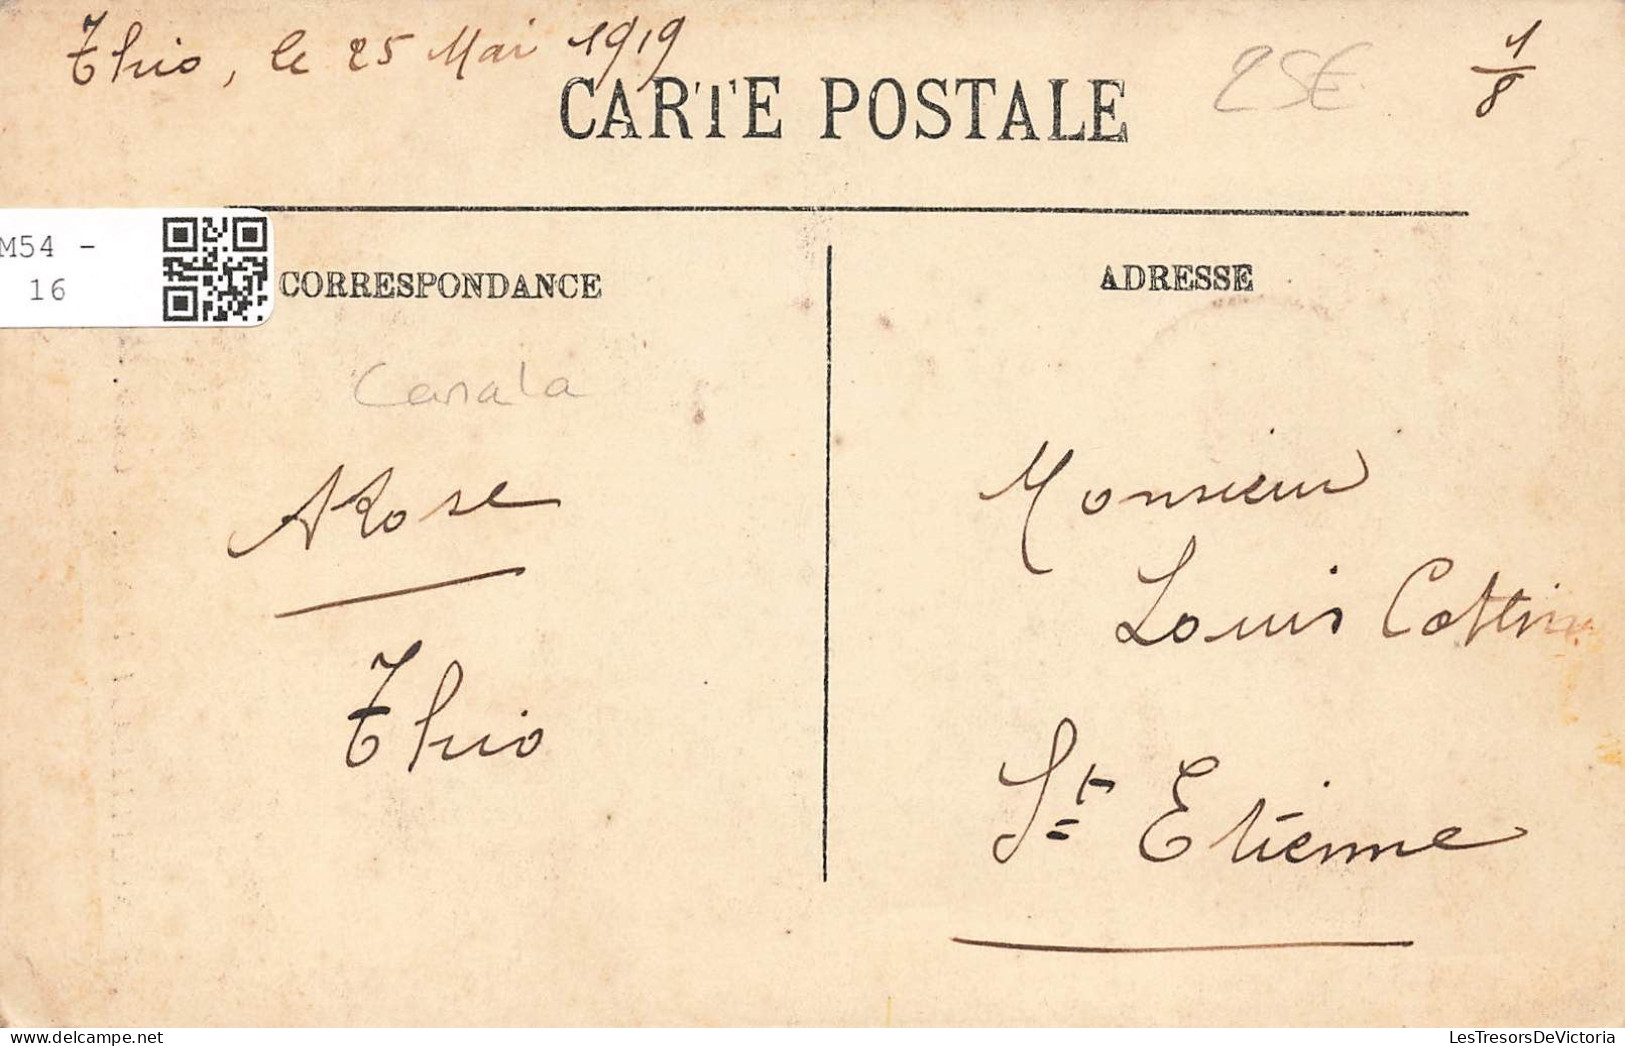 Thio, le 25 Mai 1919
25€
1/8
CARTE POSTALE
M54 -
16
CORRESPONDANCE
ADRESSE
Canala
Monsieur
Louis Cottin
Thio
St Etienne
LesTresorsDeVictoria
delcampe.net